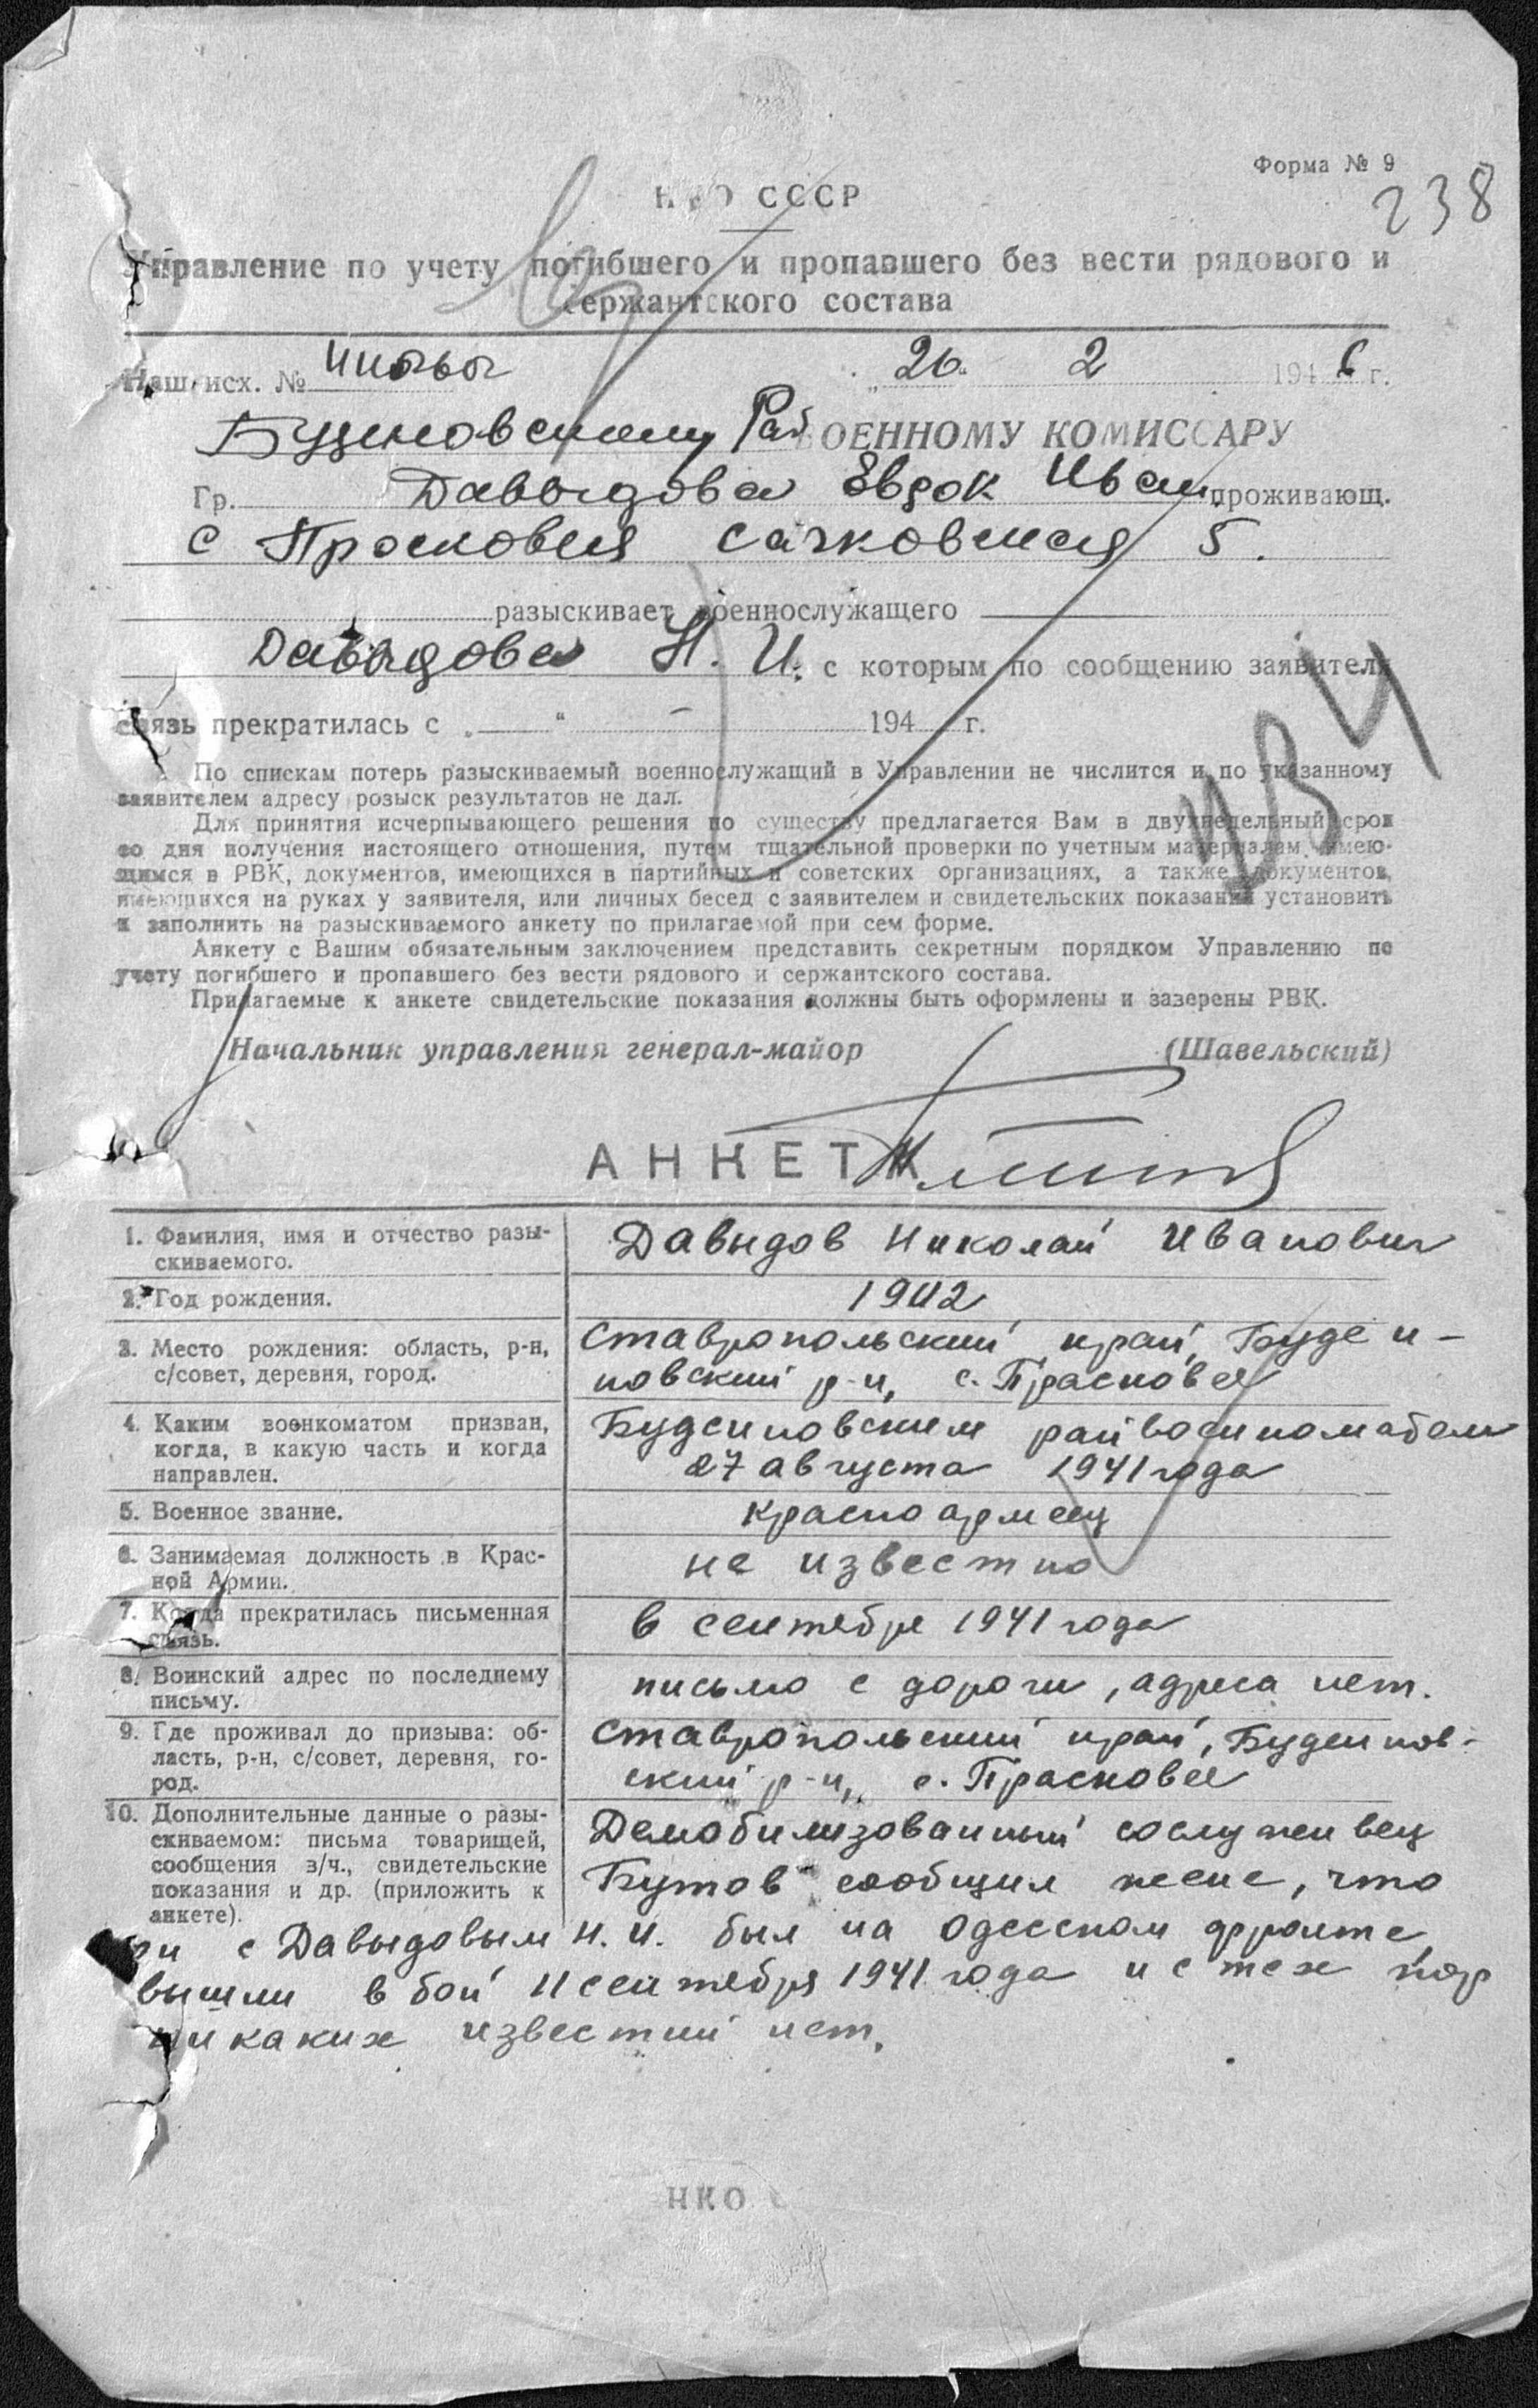 Форма № 9
238
НКО СССР
Управление по учету погибшего и пропавшего без вести рядового и
сержантского состава
Наш исх. №
„26“ 2 1946 г.
Буденовскому Рай ВОЕННОМУ КОМИССАРУ
Гр. Давыдова Евдок Иван проживающ.
с Просковея Сачковская 5.
разыскивает военнослужащего
Давыдова Н. И. с которым по сообщению заявителя
связь прекратилась с „—“ — 194 г.
По спискам потерь разыскиваемый военнослужащий в Управлении не числится и по указанному
заявителем адресу розыск результатов не дал.
Для принятия исчерпывающего решения по существу предлагается Вам в двухнедельный срок
со дня получения настоящего отношения, путем тщательной проверки по учетным материалам, имею-
щимся в РВК, документов, имеющихся в партийных и советских организациях, а также документов,
имеющихся на руках у заявителя, или личных бесед с заявителем и свидетельских показаний установить
и заполнить на разыскиваемого анкету по прилагаемой при сем форме.
Анкету с Вашим обязательным заключением представить секретным порядком Управлению по
учету погибшего и пропавшего без вести рядового и сержантского состава.
Прилагаемые к анкете свидетельские показания должны быть оформлены и заверены РВК.
Начальник управления генерал-майор (Шавельский)
АНКЕТА
1. Фамилия, имя и отчество разы-
скиваемого.
Давыдов Николай Иванович
2. Год рождения.
1902
3. Место рождения: область, р-н,
с/совет, деревня, город.
Ставропольский край, Буде н-
новский р-н, с. Прасковея
4. Каким военкоматом призван,
когда, в какую часть и когда
направлен.
Буденновским райвоенкоматом
27 августа 1941 года
5. Военное звание.
красноармеец
6. Занимаемая должность в Крас-
ной Армии.
не известно
7. Когда прекратилась письменная
связь.
в сентябре 1941 года
8. Воинский адрес по последнему
письму.
письмо с дороги, адреса нет.
9. Где проживал до призыва: об-
ласть, р-н, с/совет, деревня, го-
род.
Ставропольский край, Буденнов-
ский р-н, с. Прасковея
10. Дополнительные данные о разы-
скиваемом: письма товарищей,
сообщения в/ч., свидетельские
показания и др. (приложить к
анкете).
Демобилизованный сослуживец
Бутов сообщил жене, что
он с Давыдовым Н. И. был на Одесском фронте,
вышли в бой 11 сентября 1941 года и с тех пор
никаких известий нет.
НКО